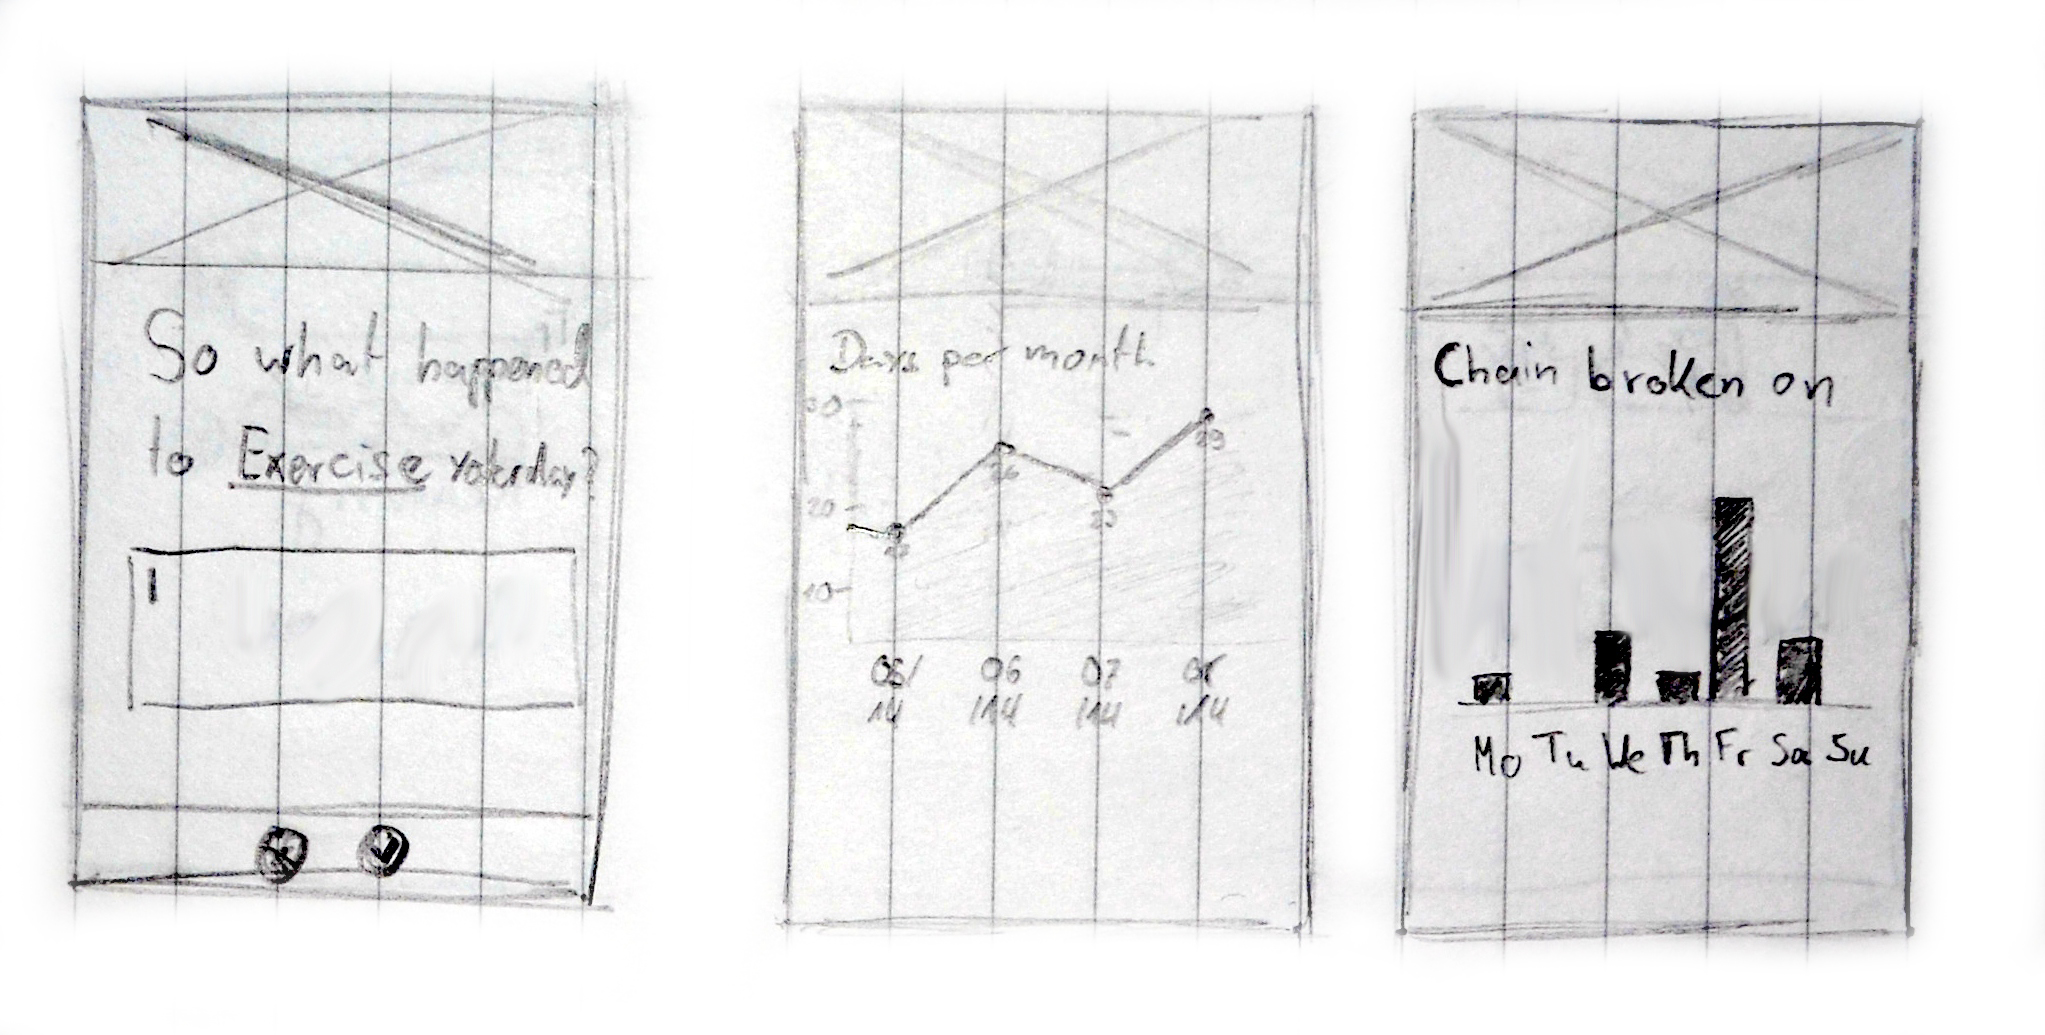 So what happened
to Exercise yesterday?
Days per month
30
20
10
26
23
29
05/ 06 07 08
14 /14 /14 /14
Chain broken on
Mo Tu We Th Fr Sa Su